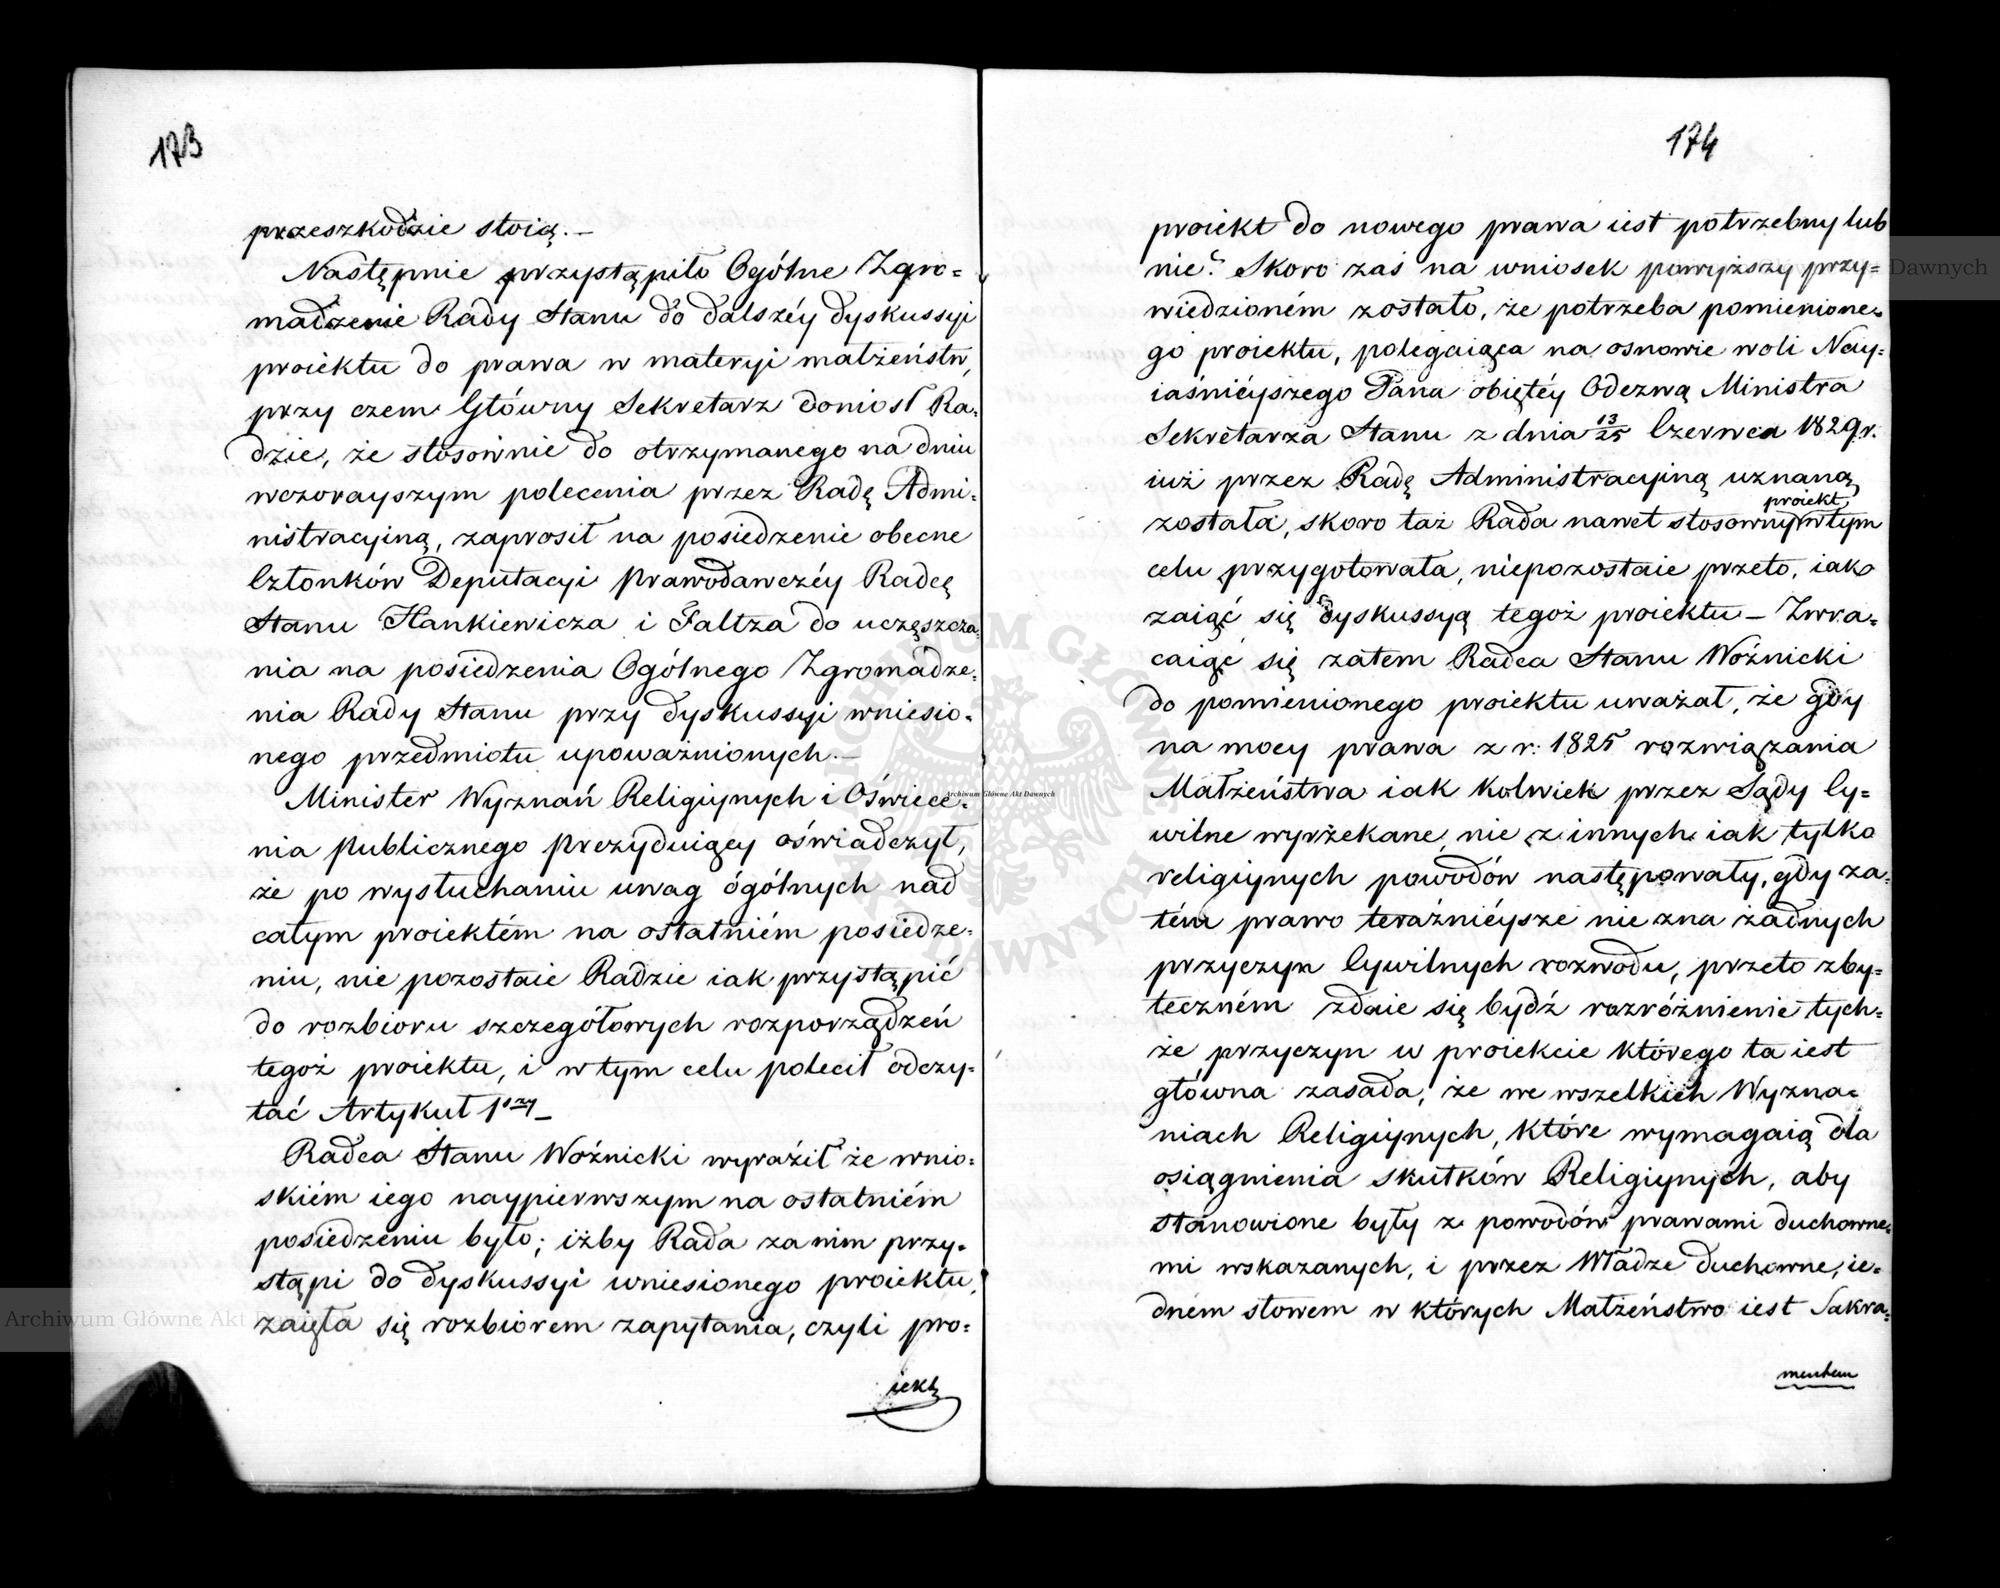 173
przeszkodzie stoią.—
Następnie przystąpiło Ogólne Zgro=
madzenie Rady Stanu do dalszéy dyskussyi
proiektu do prawa w materyi małżeństw,
przy czem Główny Sekretarz doniosł Ra=
dzie, że stosownie do otrzymanego na dniu
wczorayszym polecenia przez Radę Admi=
nistracyiną, zaprosił na posiedzenie obecne
Członków Deputacyi Prawodawczéy Radcę
Stanu Hankiewicza i Faltza do uczęszcza=
nia na posiedzenia Ogólnego Zgromadze=
nia Rady Stanu przy dyskussyi wniesio=
nego przedmiotu upoważnionych.—
Minister Wyznań Religiynych i Oświece=
nia publicznego prezyduiący oświadczył,
że po wysłuchaniu uwag ógólnych nad
całym proiektém na ostatniém posiedze=
niu, nie pozostaie Radzie iak przystąpić
do rozbioru szczegółowych rozporządzeń
tegoż proiektu, i w tym celu polecił odczy=
tać Artykuł 1szy—
Radca Stanu Woźnicki wyraził że wnio=
skiém iego naypierwszym na ostatniém
posiedzeniu było; iżby Rada za nim przy=
stąpi do dyskussyi wniesionego proiektu,
zaięła się rozbiorem zapytania, czyli pro=
iekt
174
proiekt do nowego prawa iest potrzebny lub
nie? Skoro zaś na wniosek powyższy przy=
wiedzioném zostało, że potrzeba pomienione=
go proiektu, polegaiąca na osnowie woli Nay=
iaśniéyszego Pana obiętéy Odezwą Ministra
Sekretarza Stanu z dnia 13/25 Czerwca 1829 r.
iuż przez Radę Administracyiną uznaną
proiekt
została, skoro taż Rada nawet stosowny w tym
celu przygotowała, niepozostaie przeto, iak
zaiąć się dyskussyą tegoż proiektu — Zwra=
caiąc się zatem Radca Stanu Woźnicki
do pomienionego proiektu uważał, że gdy
na mocy prawa z r: 1825 rozwiązania
Małżeństwa iak kolwiek przez Sądy Cy=
wilne wyrżekane, nie z innych iak tylko
religiynych powodów następowały, gdy za=
tém prawo teraźniéysze nie zna żadnych
przyczyn Cywilnych rozwodu, przeto zby=
teczném zdaie się bydź rozróżnienie tych=
że przyczyn w proiekcie którego ta iest
główna zasada, że we wszelkich Wyzna=
niach Religiynych, które wymagaią dla
osiągnienia skutków Religiynych, aby
stanowione były z powodów prawami duchowne=
mi wskazanych, i przez Władze duchowne, ie=
dném słowem w których Małżeństwo iest Sakra=
mentem
Archiwum Główne Akt Dawnych